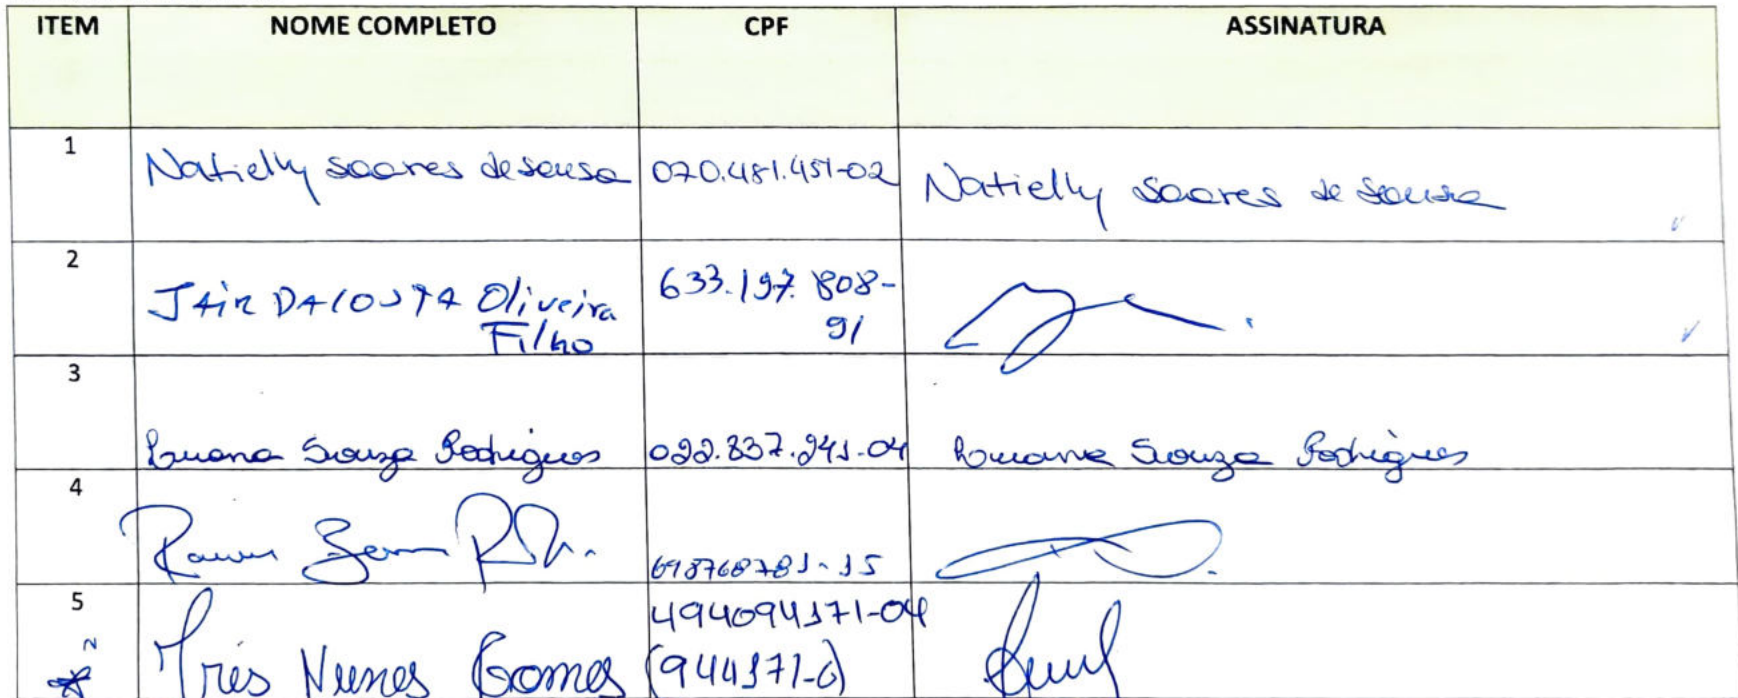 ITEM NOME COMPLETO CPF ASSINATURA
1 Natielly soares de sousa 070.481.451-02 Natielly soares de sousa
2 JAIR DA COSTA Oliveira 633.197.808-
Filho 91
3
Luana Souza Rodrigues 022.837.241-04 Luana Souza Rodrigues
4
698768781-15
5 494094171-04
Nunes Gomes (944171-6)